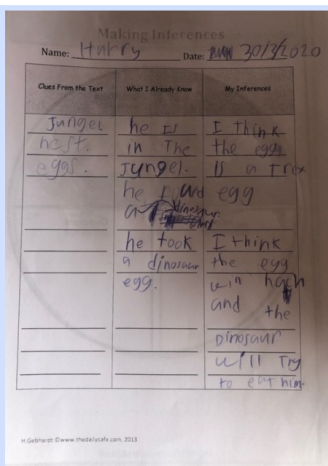 Making Inferences
Name: Harry Date: 30/3/2020
Clues From the Text
What I Already Know
My Inferences
Jungel
nest.
eggs.
he is
in The
Jyngel.
he found egg
a dinosaur
he took
a dinosaur
egg.
I think
the eggs
is a Trex
I think
the egg
will hach
and the
Dinosaur
will Try
to eat him.
H.Gebhardt ©www.thedailycafe.com, 2013